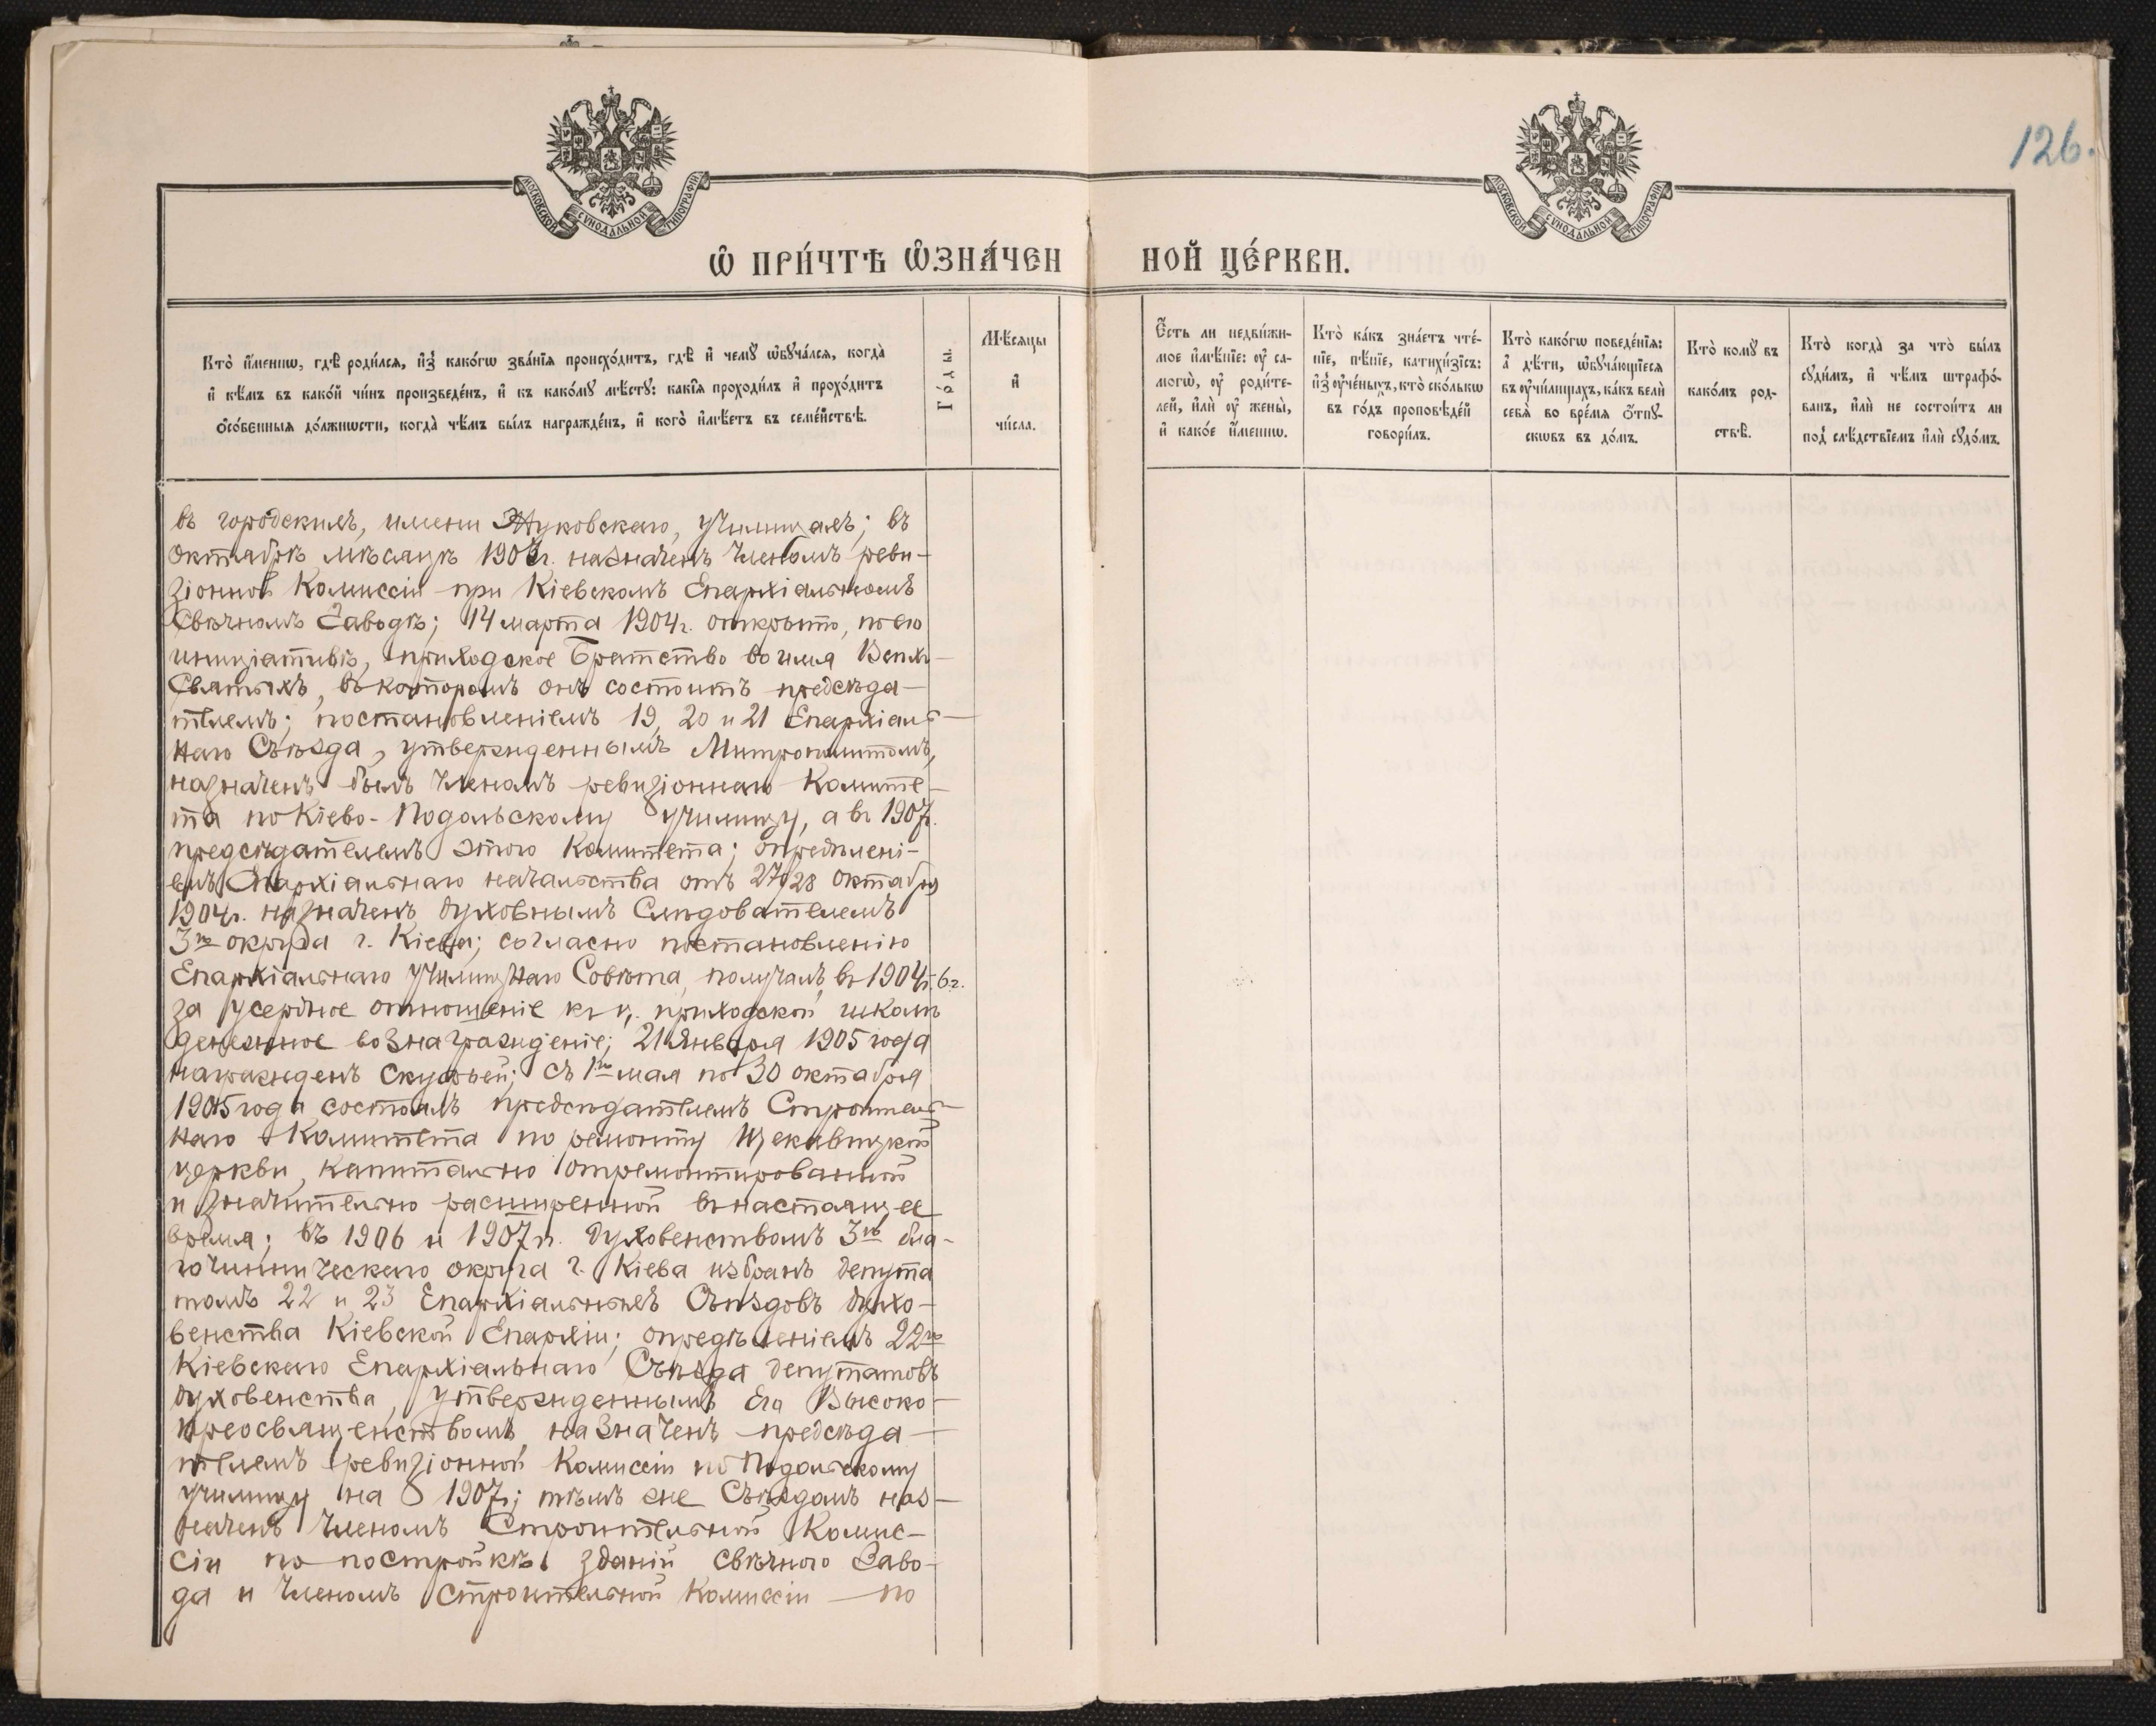 126.
МОСКОВСКОЙ СѴНОДАЛЬНОЙ ТИПОГРАФІИ
МОСКОВСКОЙ СѴНОДАЛЬНОЙ ТИПОГРАФІИ
Ѡ ПРИ́ЧТѢ Ѡ҆ЗНА́ЧЕН НОЙ ЦЕ́РКВИ.
Кто̀ и҆́меннѡ, гдѣ̀ роди́лся, и҆з̾ како́гѡ зва́нїѧ происхо́дитъ, гдѣ̀ и҆ чемꙋ̀ ѡ҆бꙋча́лся, когда̀
и҆ кѣ́мъ въ како́й чи́нъ произведе́нъ, и҆ къ како́мꙋ мѣ́стꙋ: какі̑ѧ проходи́лъ и҆ прохо́дитъ
ѻ҆со́бенныѧ до́лжнѡсти, когда̀ чѣ́мъ бы́лъ награжде́нъ, и҆ кого̀ и҆мѣ́етъ въ семе́йствѣ.
Го́ды.
Мѣ́сяцы
и҆
чи́сла.
Е҆́сть ли недви́жи-
мое и҆мѣ́нїе: оу҆ са-
могѡ̀, оу҆ роди́те-
лей, и҆лѝ оу҆ жены̀,
и҆ како́е и҆́меннѡ.
Кто̀ ка́къ зна́етъ чте́-
нїе, пѣ́нїе, катихи́зїсъ:
и҆з̾ оу҆че́ныхъ, кто̀ ско́лькѡ
въ го́дъ проповѣ́дей
говори́лъ.
Кто̀ како́гѡ поведе́нїѧ:
а҆ дѣ́ти, ѡ҆бꙋча́ющїесѧ
въ оу҆чи́лищахъ, ка́къ велѝ
себѧ̀ во вре́мѧ ѻ҆тпꙋ-
скѡвъ въ до́мъ.
Кто̀ комꙋ̀ въ
како́мъ род-
ствѣ̀.
Кто̀ когда̀ за что̀ бы́лъ
сꙋди́мъ, и҆ чѣ́мъ штрафо́-
ванъ, и҆лѝ не состои́тъ ли
под̾ слѣ́дствїемъ и҆лѝ сꙋдо́мъ.
въ городскихъ, имени Жуковскаго, училищахъ; въ
Октябрѣ мѣсяцѣ г. назначенъ членомъ реви-
зіонной Комиссіи при Кіевскомъ Епархіальномъ
Свѣчномъ Заводѣ; 14 марта 1904г. открыто, по его
иниціативѣ, приходское Братство во имя Всѣхъ
Святыхъ, въ которомъ онъ состоитъ предсѣда-
телемъ; постановленіемъ 19, 20 и 21 Епархіаль-
наго Съѣзда, утвержденнымъ Митрополитомъ,
назначенъ былъ членомъ ревизіоннаго Комите-
та по Кіево-Подольскому училищу, а въ 1907г.
предсѣдателемъ этого Комитета; опредѣлені-
емъ Епархіальнаго начальства отъ 27/28 октября
1904г. назначенъ духовнымъ Слѣдователемъ
3го округа г. Кіева; согласно постановленію
Епархіальнаго Училищнаго Совѣта, получалъ въ 1904-6г.
за усердное отношеніе къ ц. приходской школѣ
денежное вознагражденіе; 21 Января 1905 года
награжденъ скуфьей; съ 1го мая по 30 октября
1905 года состоялъ предсѣдателемъ Строитель-
наго Комитета по ремонту Щекавицкой
церкви, капитально отремонтированной
и значительно расширенной въ настоящее
время; въ 1906 и 1907гг. духовенствомъ 3го бла-
гочинническаго округа г. Кіева избранъ депута
томъ 22 и 23 Епархіальныхъ Съѣздовъ духо-
венства Кіевской Епархіи; опредѣленіемъ 22го
Кіевскаго Епархіальнаго Съѣзда депутатовъ
духовенства, утвержденнымъ Его Высоко-
преосвященствомъ, назначенъ предсѣда-
телемъ ревизіонной Комиссіи по Подольскому
училищу на 1907г; тѣмъ же Съѣздомъ наз-
наченъ членомъ Строительной Комис-
сіи по постройкѣ зданій свѣчного Заво-
да и членомъ Строительной Комиссіи по